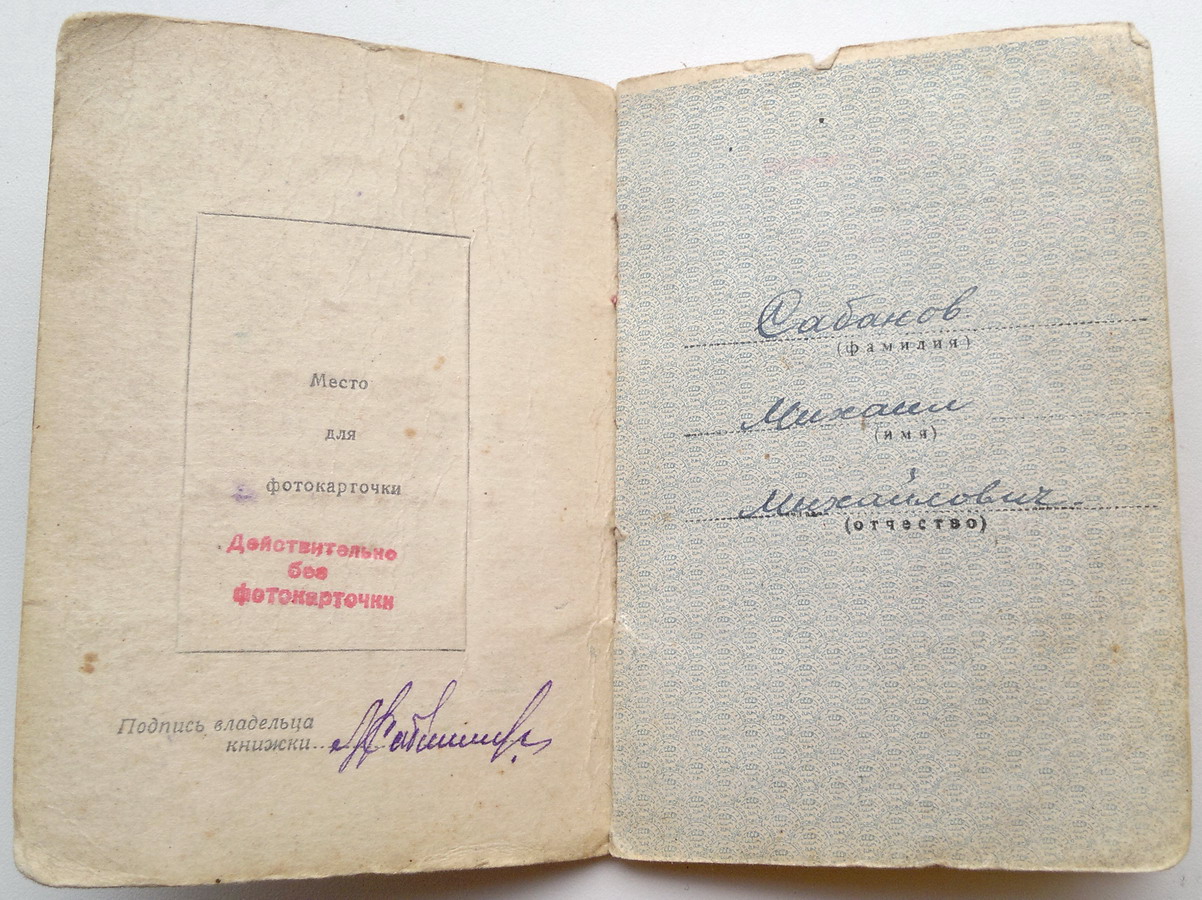 Место
для
фотокарточки
Действительно
без
фотокарточки
Подпись владельца
книжки
Сабанов
(фамилия)
Михаил
(имя)
Михайлович
(отчество)